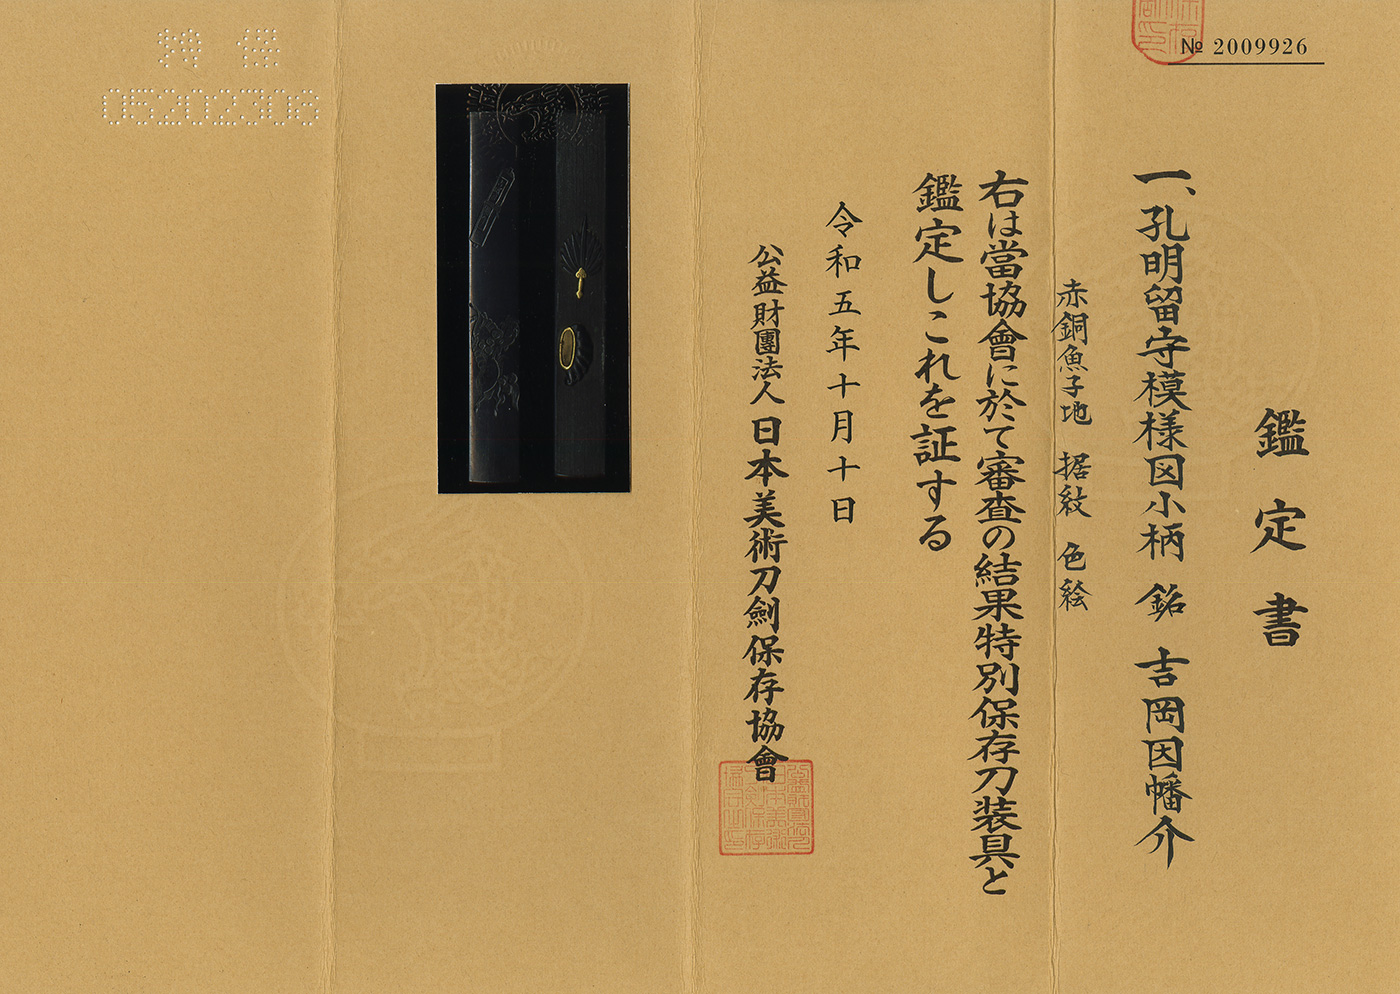 № 2009926
鑑定書
一、孔明留守模様図小柄 銘 吉岡因幡介
赤銅魚子地 据紋 色絵
右は當協會に於て審査の結果特別保存刀装具と
鑑定しこれを証する
令和五年十月十日
公益財團法人 日本美術刀劍保存協會
特保
05202308